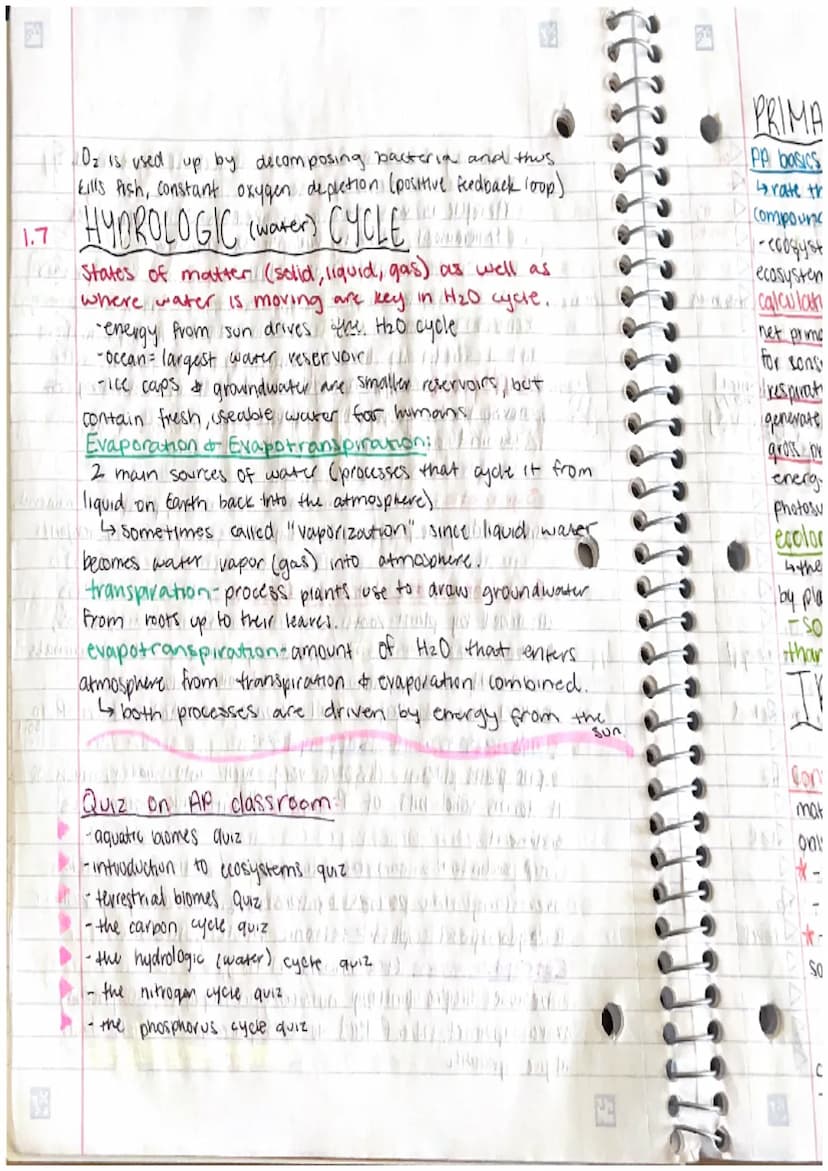 O₂ is used up by decomposing bacteria and thus
kills fish, constant oxygen depletion (positive feedback loop)
1.7 HYDROLOGIC (water) CYCLE
States of matter (solid, liquid, gas) as well as
where water is moving are key in H2O cycle.
-energy from sun drives the H2O cycle
-ocean = largest water reservoir
-ice caps & groundwater are smaller reservoirs, but
contain fresh, useable water for humans
Evaporation & Evapotranspiration:
2 main sources of water (processes that cycle it from
liquid on Earth back into the atmosphere)
↳ sometimes called "vaporization" since liquid water
becomes water vapor (gas) into atmosphere.
transpiration- process plants use to draw groundwater
from roots up to their leaves.
evapotranspiration- amount of H2O that enters
atmosphere from transpiration & evaporation combined.
↳ both processes are driven by energy from the
sun
Quiz on AP classroom:
-aquatic biomes quiz
-introduction to ecosystems quiz
-terrestrial biomes quiz
-the carbon cycle quiz
-the hydrologic (water) cycle quiz
-the nitrogen cycle quiz
-the phosphorus cycle quiz
PRIMA
PP basics
↳ rate th
compound
-ecosyst
ecosystem
calculat
net prima
for cons
respirat
generate
gross pr
energ
photosy
ecolog
↳ the
by pla
-so
than
Con
mat
onl
*-
-
*-
so